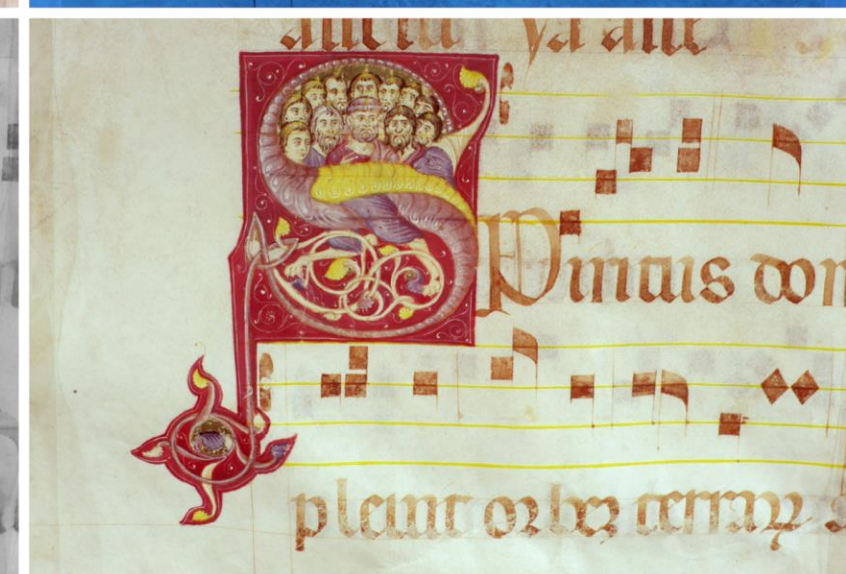 alle lu ya alle
SPiritus
pleuit orbeȝ terraꝝ